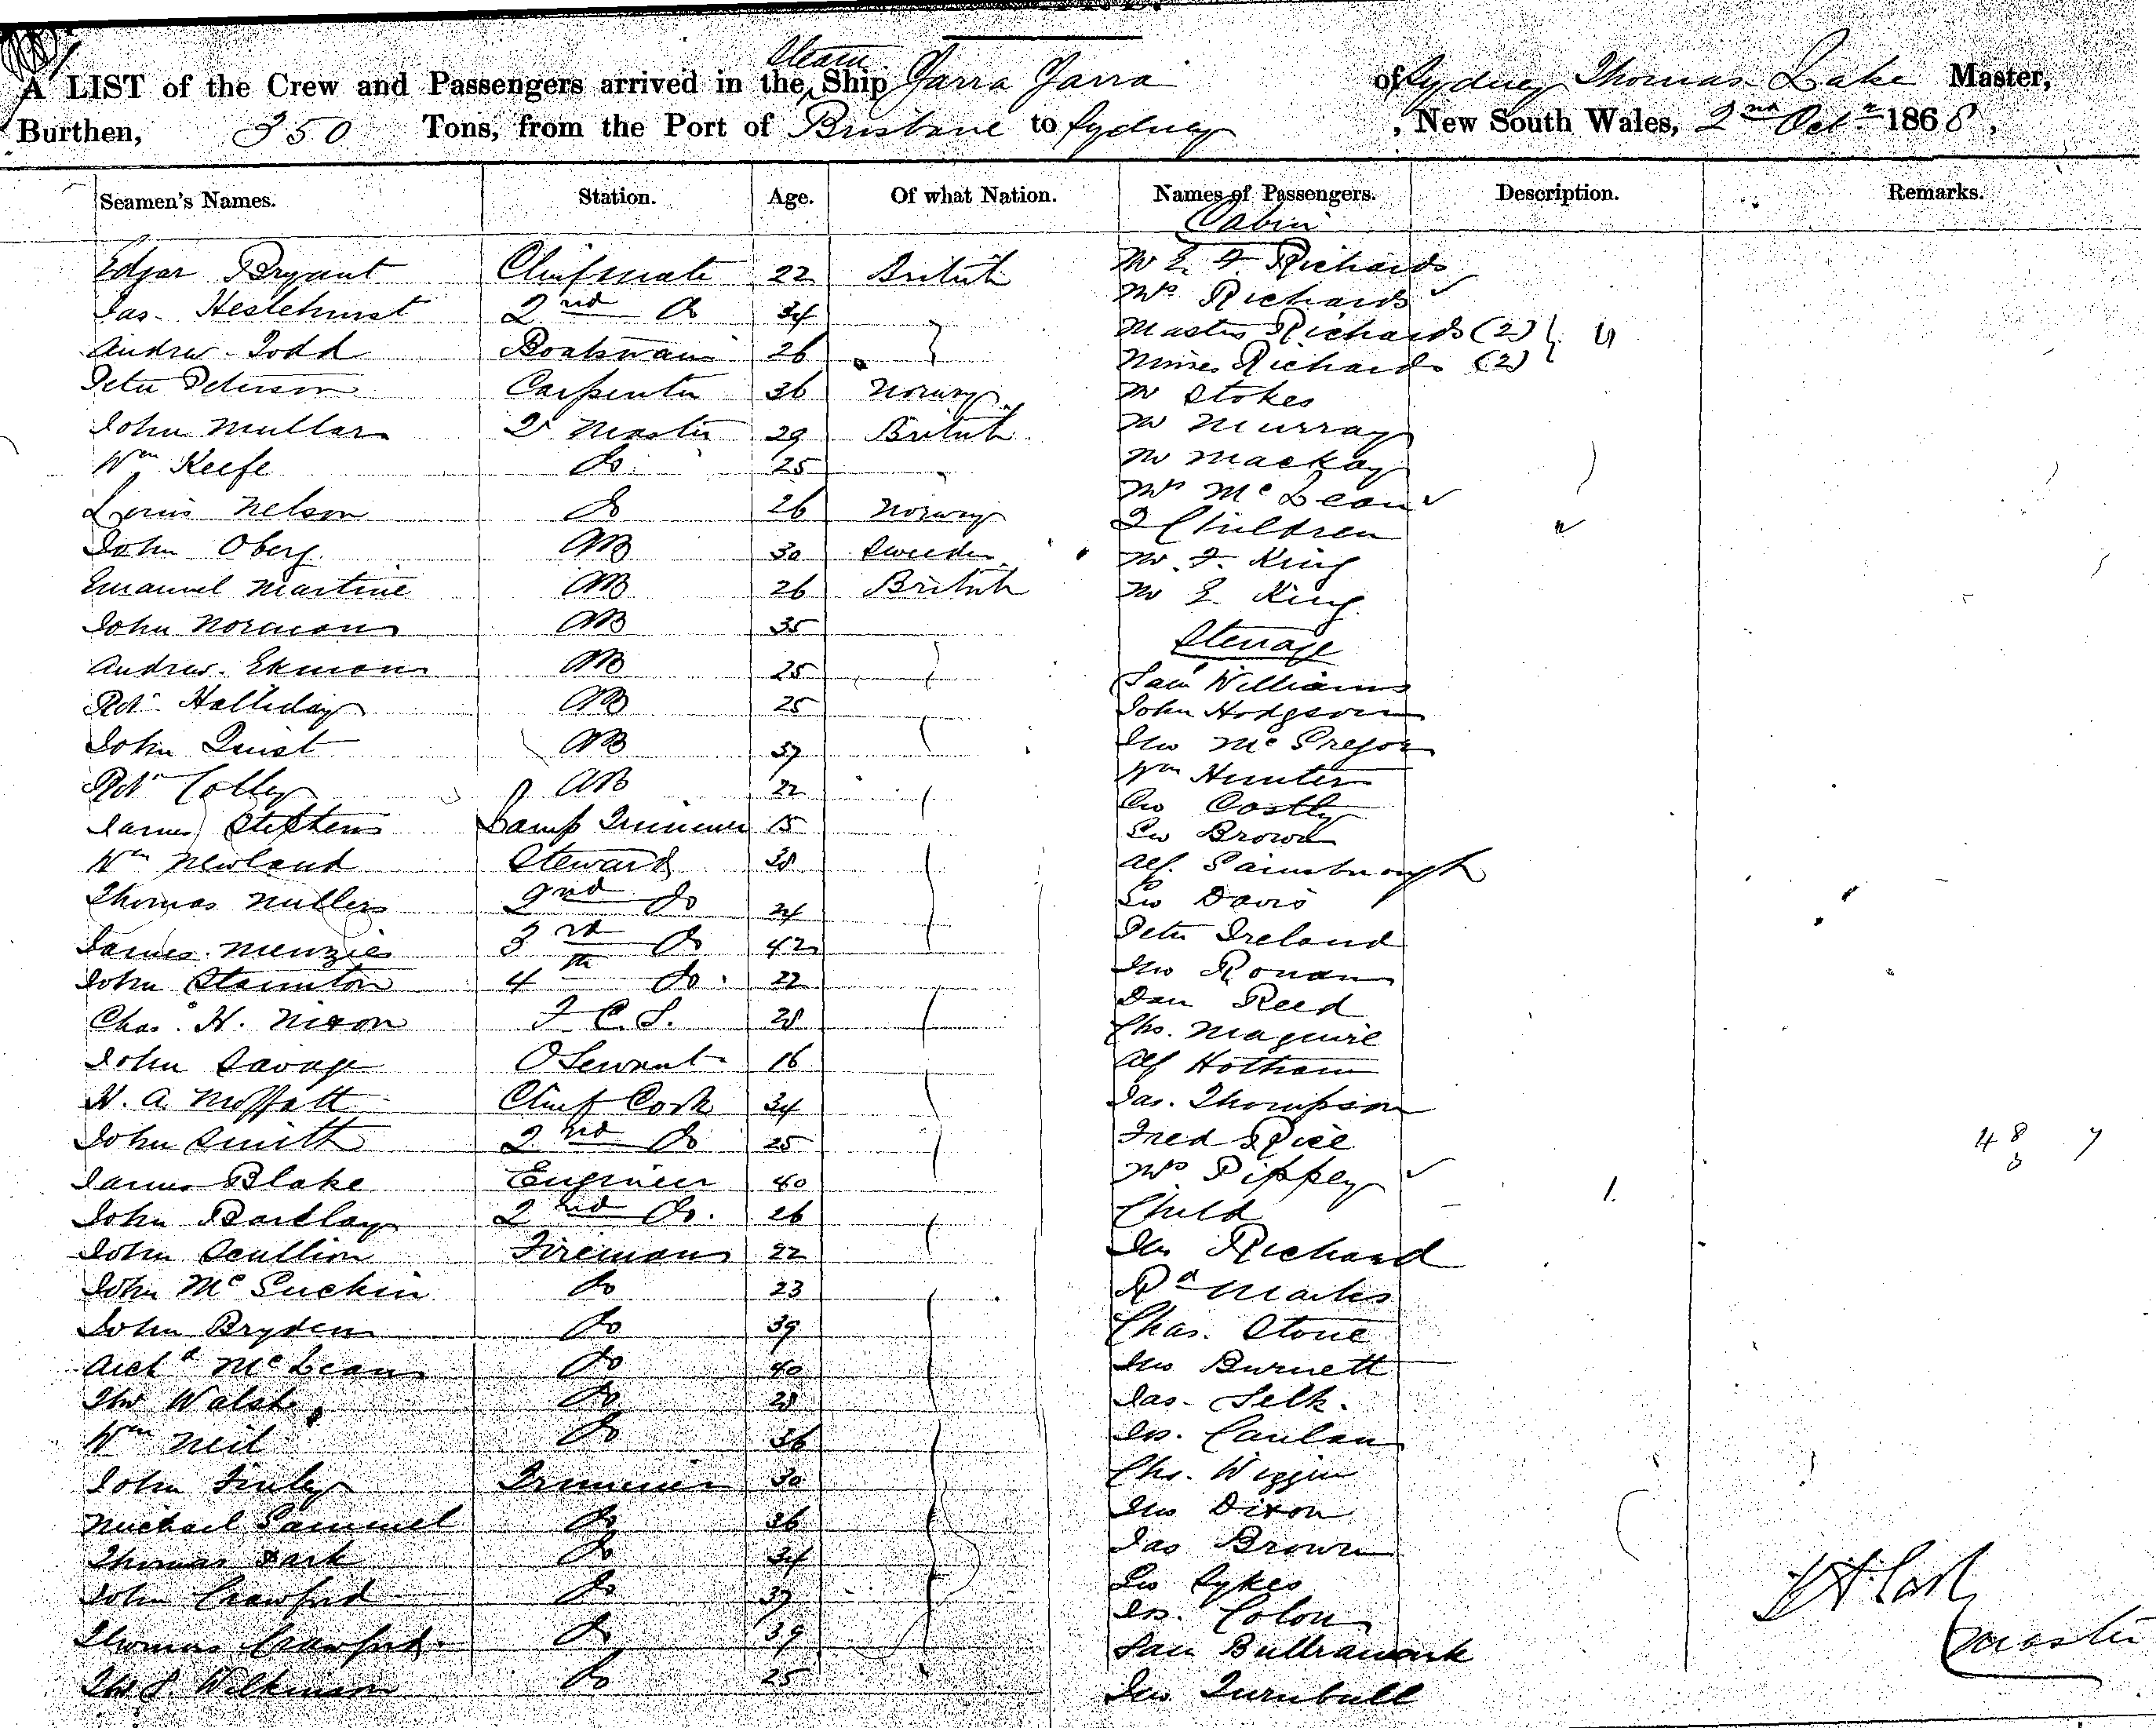 A LIST of the Crew and Passengers arrived in the Steam Ship Yarra Yarra of Sydney Thomas Lake Master,
Burthen, 350 Tons, from the Port of Brisbane to Sydney, New South Wales, 2nd Octr 1868,
Seamen's Names. Station. Age. Of what Nation. Names of Passengers. Description. Remarks.
Cabin
Edgar Bryant Chief mate 22 British Mr E. F. Richards
Jas. Heslehurst 2nd Do 34 Mrs Richards
Andrew Todd Boatswain 26 Masters Richards (2) 4
Misses Richards (2)
Peter Peterson Carpenter 36 Norway Mr Stokes
John Mullar 2r Master 29 British Mr Murray
Wm Keefe Do 25 Mr Mackay
Mrs McLean
Louis Nelson Do 26 Norway 2 Children
John Oberg AB 30 Sweden Mr F. King
Emanuel Martine AB 26 British Mr E King
John Norman AB 35 Steerage
Andrew Ekman AB 25 Saml Williams
Rbt Halliday AB 25 John Hodgson
John Quist AB 37 Jno McGregor
Rbt Colley AB 22 Wm Hunter
Geo Costly
James Stephens Lamp Trimmer 15 Geo Brown
Wm Newland Steward 38 Alf. Gainsborough
Thomas Mullers 2nd Do 24 Geo Davis
James Menzies 3rd Do 42 Peter Ireland
John Staunton 4th Do 22 Jno Ronan
Dan Reed
Chas H. Nixon F.C.S. 28 Chs. Maguire
John Savage O Servant 16 Alf Hotham
H. A. Moffatt Chief Cook 34 Jas. Thompson
John Smith 2nd Do 25 Fred Rice 48 7
James Blake Engineer 40 Mrs Pippey
John Barclay 2nd Do. 26 Child 1.
John Scullion Fireman 22 Jno Richard
John McGuckin Do 23 Rd Marks
John Bryden Do 39 Chas. Stone
Archd McLean Do 40 Jno Burnett
Thos Walsh Do 28 Jas. Selk.
Wm Neil Do 36 Jos. Caulan
John Finley Trimmer 30 Chs. Wiggin
Michael Sammel Do 36 Jno Dixon
Thomas Dark Do 34 Jas Brown
John Crawford Do 37 Geo Sykes
Jos. Colon
Thomas Crawford Do 39 Sam Bullramark
Thos S. Wilkinson Do 25 Jno Turnbull
Master